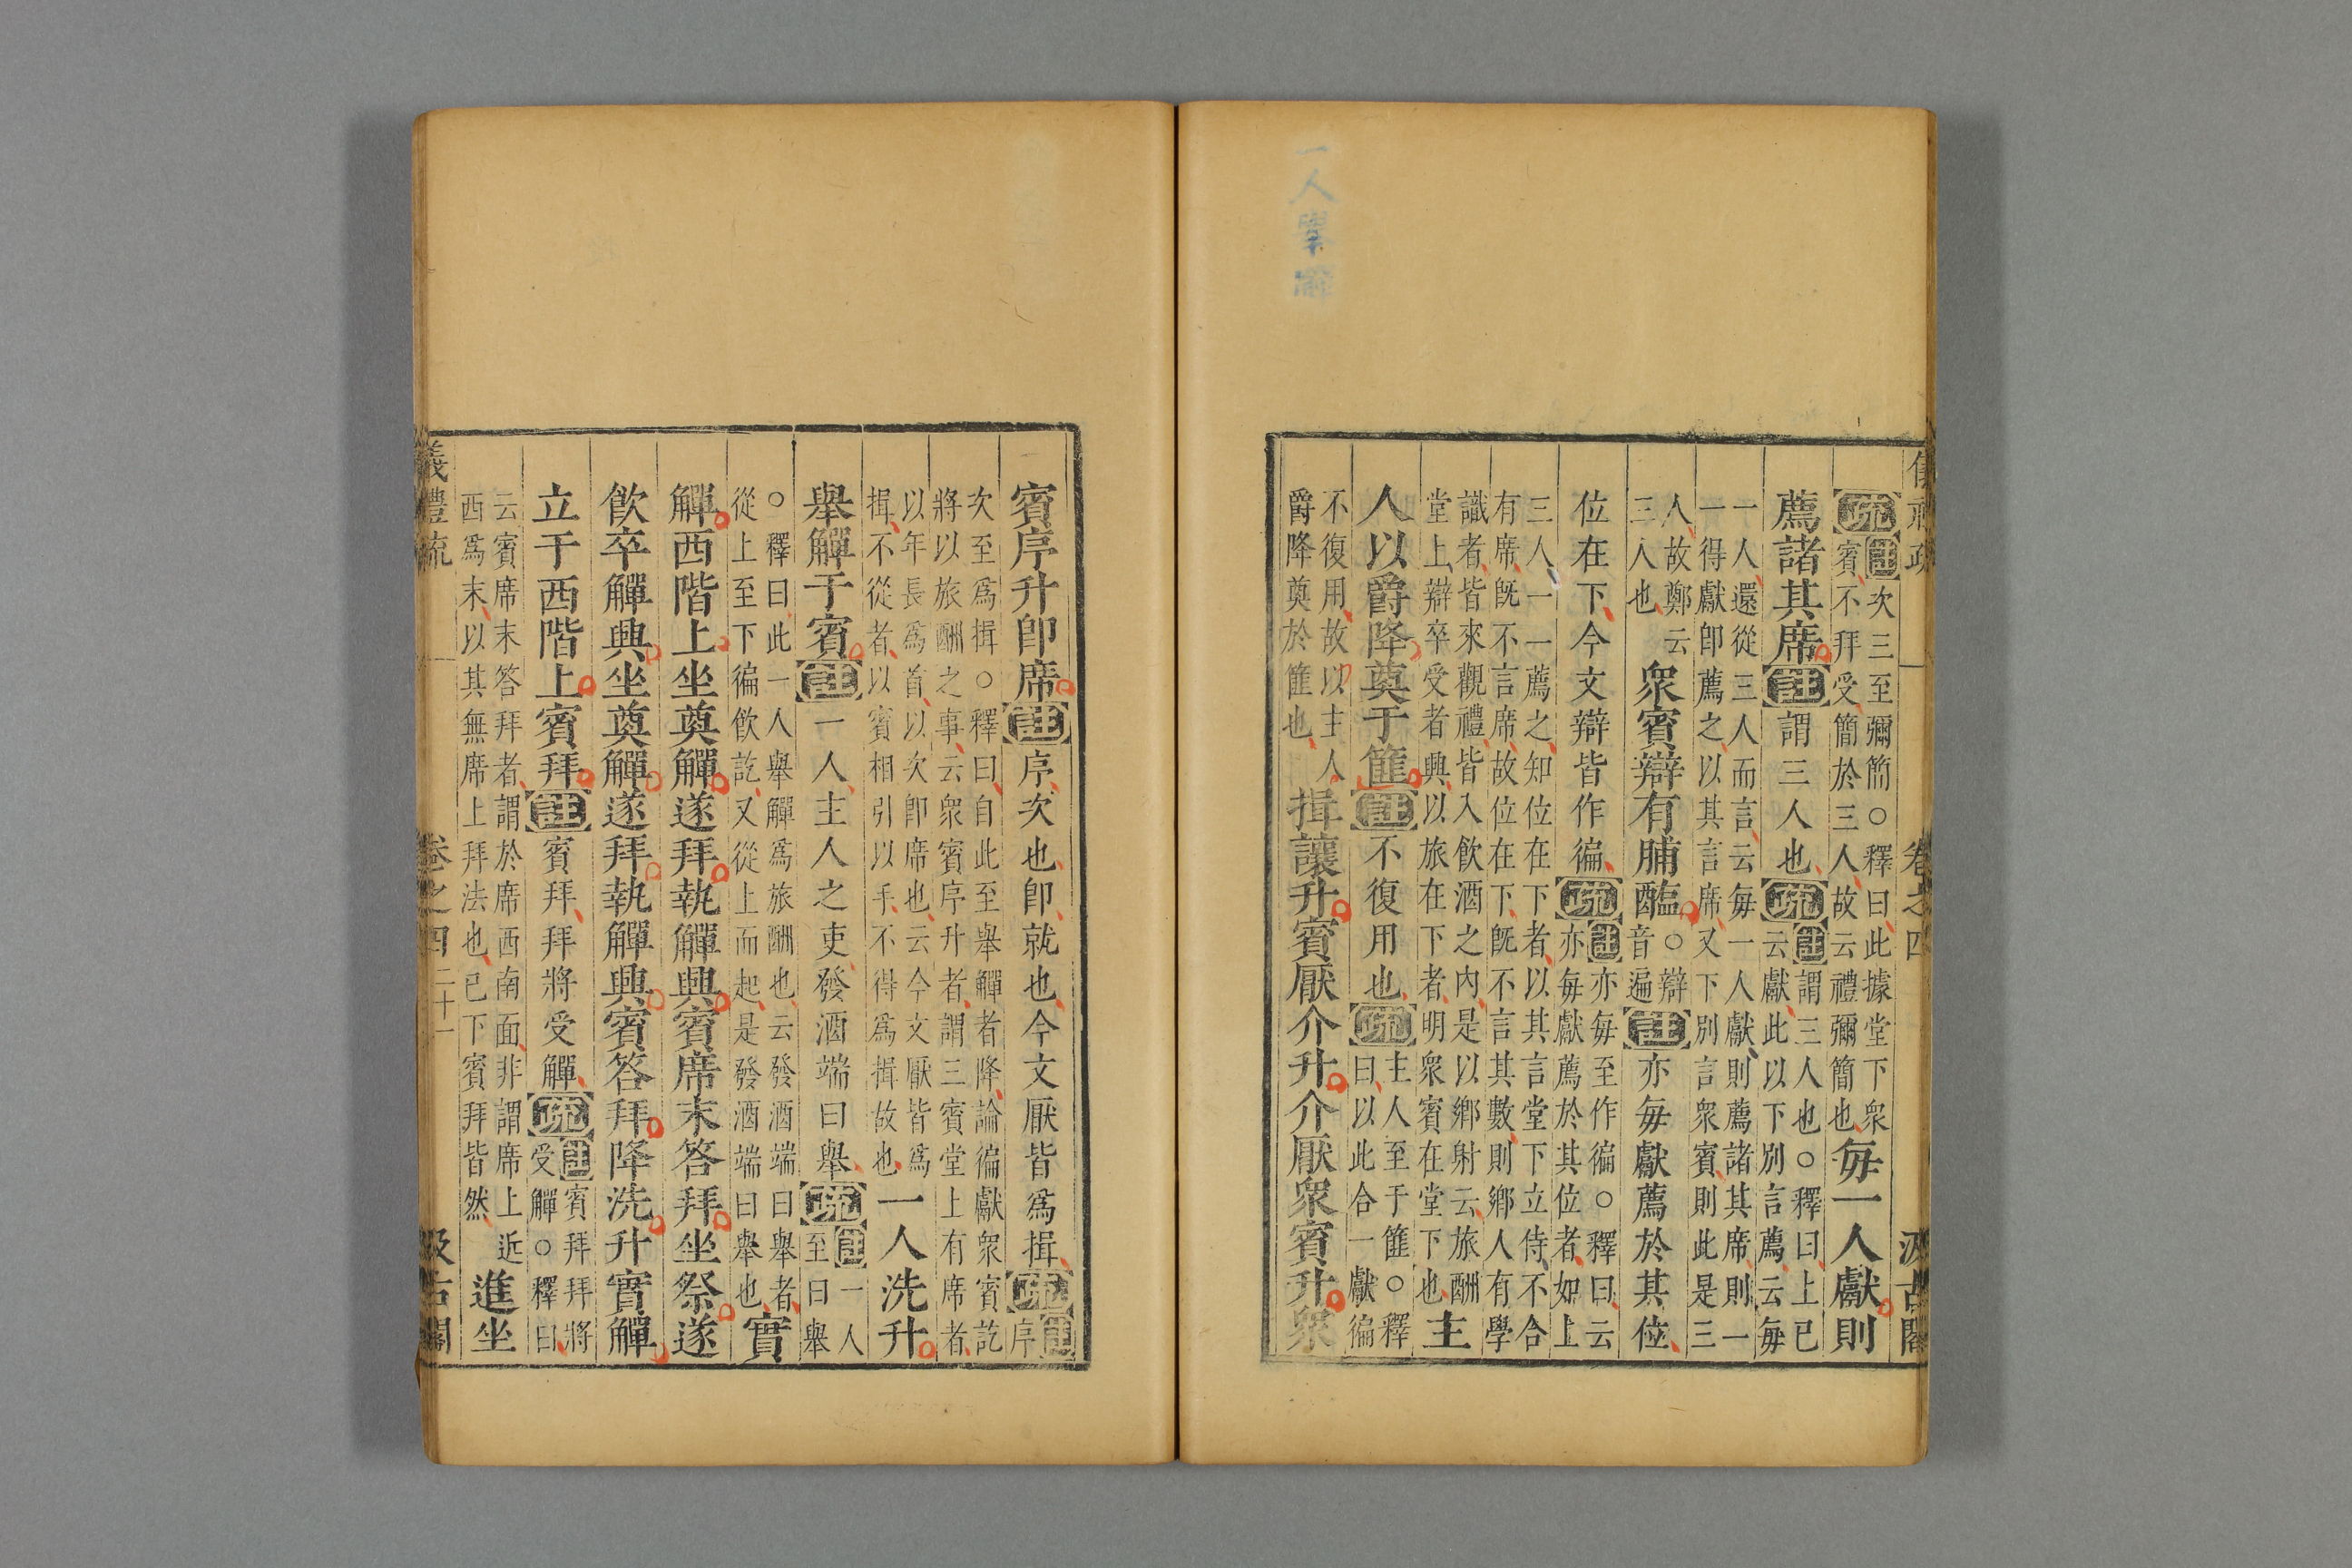 一人舉觶
儀禮疏 卷之四 汲古閣
疏註次三至彌簡○釋曰此據堂下衆
賓不拜受簡於三人故云禮彌簡也每一人獻則
薦諸其席註謂三人也疏註謂三人也○釋曰上已
云獻此以下別言薦云每
一人還從三人而言云每一人獻則薦諸其席則一
一得獻卽薦之以其言席又下別言衆賓則此是三
人故鄭云
三人也衆賓辯有脯醢○辯
音遍註亦每獻薦於其位
位在下今文辯皆作徧疏註亦每至作徧○釋曰云
亦每獻薦於其位者如上
三人一一薦之知位在下者以其言堂下立侍不合
有席旣不言席故位在下旣不言其數則鄉人有學
識者皆來觀禮皆入飮酒之內是以鄉射云旅酬
堂上辯卒受者興以旅在下者明衆賓在堂下也主
人以爵降奠于篚註不復用也疏主人至于篚○釋
曰以此合一獻徧
不復用故以主人
爵降奠於篚也揖讓升賓厭介升介厭衆賓升衆
賓序升卽席註序次也卽就也今文厭皆爲揖疏註
序
次至爲揖○釋曰自此至舉觶者降論徧獻衆賓訖
將以旅酬之事云衆賓序升者謂三賓堂上有席者
以年長爲首以次卽席也云今文厭皆爲
揖不從者以賓相引以手不得爲揖故也一人洗升
舉觶于賓註一人主人之吏發酒端曰舉疏註一人
至曰舉
○釋曰此一人舉觶爲旅酬也云發酒端曰舉者
從上至下徧飮訖又從上而起是發酒端曰舉也實
觶西階上坐奠觶遂拜執觶興賓席末答拜坐祭遂
飮卒觶興坐奠觶遂拜執觶興賓答拜降洗升實觶
立于西階上賓拜註賓拜拜將受觶疏註賓拜拜將
受觶○釋曰
云賓席末答拜者謂於席西南面非謂席上近
西爲末以其無席上拜法也已下賓拜皆然進坐
儀禮疏 卷之四 二十一 汲古閣